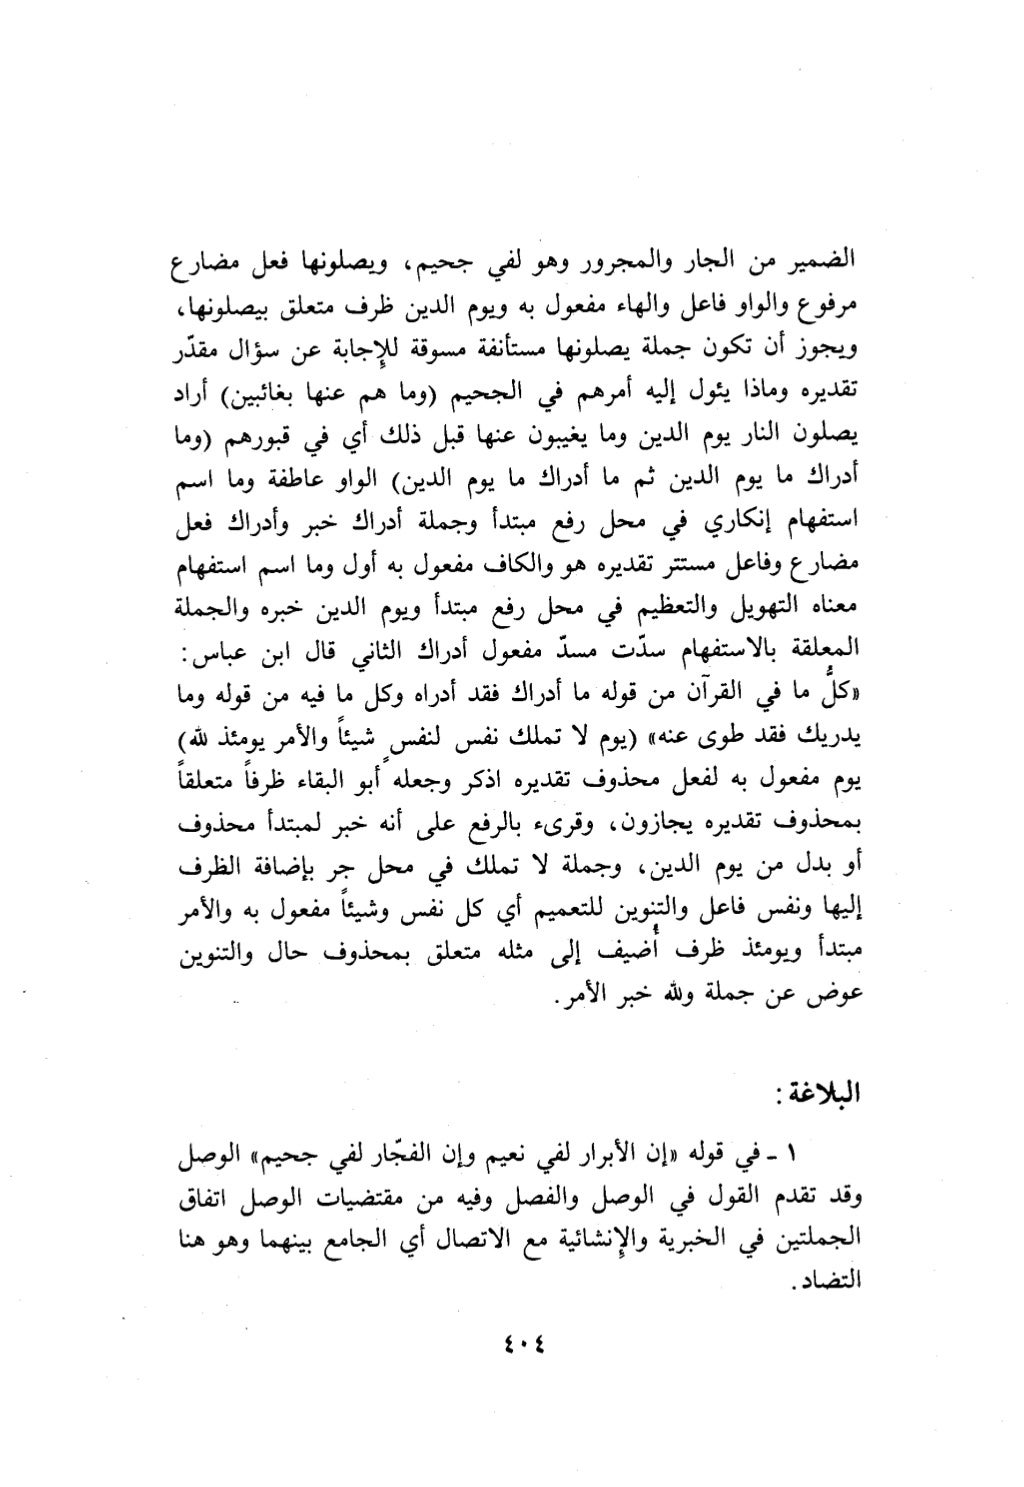 الضمير من الجار والمجرور وهو لفي جحيم، ويصلونها فعل مضارع
مرفوع والواو فاعل والهاء مفعول به ويوم الدين ظرف متعلق بيصلونها،
ويجوز أن تكون جملة يصلونها مستأنفة مسوقة للإجابة عن سؤال مقدّر
تقديره وماذا يئول إليه أمرهم في الجحيم (وما هم عنها بغائبين) أراد
يصلون النار يوم الدين وما يغيبون عنها قبل ذلك أي في قبورهم (وما
أدراك ما يوم الدين ثم ما أدراك ما يوم الدين) الواو عاطفة وما اسم
استفهام إنكاري في محل رفع مبتدأ وجملة أدراك خبر وأدراك فعل
مضارع وفاعل مستتر تقديره هو والكاف مفعول به أول وما اسم استفهام
معناه التهويل والتعظيم في محل رفع مبتدأ ويوم الدين خبره والجملة
المعلقة بالاستفهام سدّت مسدّ مفعول أدراك الثاني قال ابن عباس:
«كلُّ ما في القرآن من قوله ما أدراك فقد أدراه وكل ما فيه من قوله وما
يدريك فقد طوى عنه» (يوم لا تملك نفس لنفسٍ شيئاً والأمر يومئذ لله)
يوم مفعول به لفعل محذوف تقديره اذكر وجعله أبو البقاء ظرفاً متعلقاً
بمحذوف تقديره يجازون، وقرىء بالرفع على أنه خبر لمبتدأ محذوف
أو بدل من يوم الدين، وجملة لا تملك في محل جر بإضافة الظرف
إليها ونفس فاعل والتنوين للتعميم أي كل نفس وشيئاً مفعول به والأمر
مبتدأ ويومئذ ظرف أُضيف إلى مثله متعلق بمحذوف حال والتنوين
عوض عن جملة ولله خبر الأمر.
البلاغة:
١ ـ في قوله «إن الأبرار لفي نعيم وإن الفجّار لفي جحيم» الوصل
وقد تقدم القول في الوصل والفصل وفيه من مقتضيات الوصل اتفاق
الجملتين في الخبرية والإنشائية مع الاتصال أي الجامع بينهما وهو هنا
التضاد.
٤٠٤